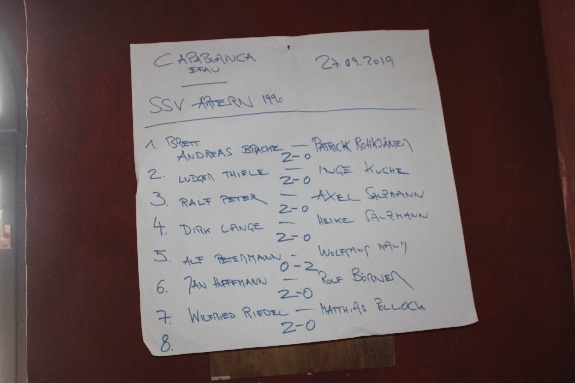 CAPABLANCA 27.09.2019
EFAU
SSV ARTERN 1990
1. BRETT
ANDREAS BRACHE — PATRICK
2-0
2. LUDGER THIELE — INGE KUCHE
2-0
3. RALF PETER — AXEL SALZMANN
2-0
4. DIRK LANGE — HEIKE SALZMANN
2-0
5. ALF PETERMANN — WOLFGANG
0-2
6. JAN HOFFMANN — ROLF BÖRNER
2-0
7. WILFRIED RIEDEL — MATTHIAS POLLOCK
2-0
8.